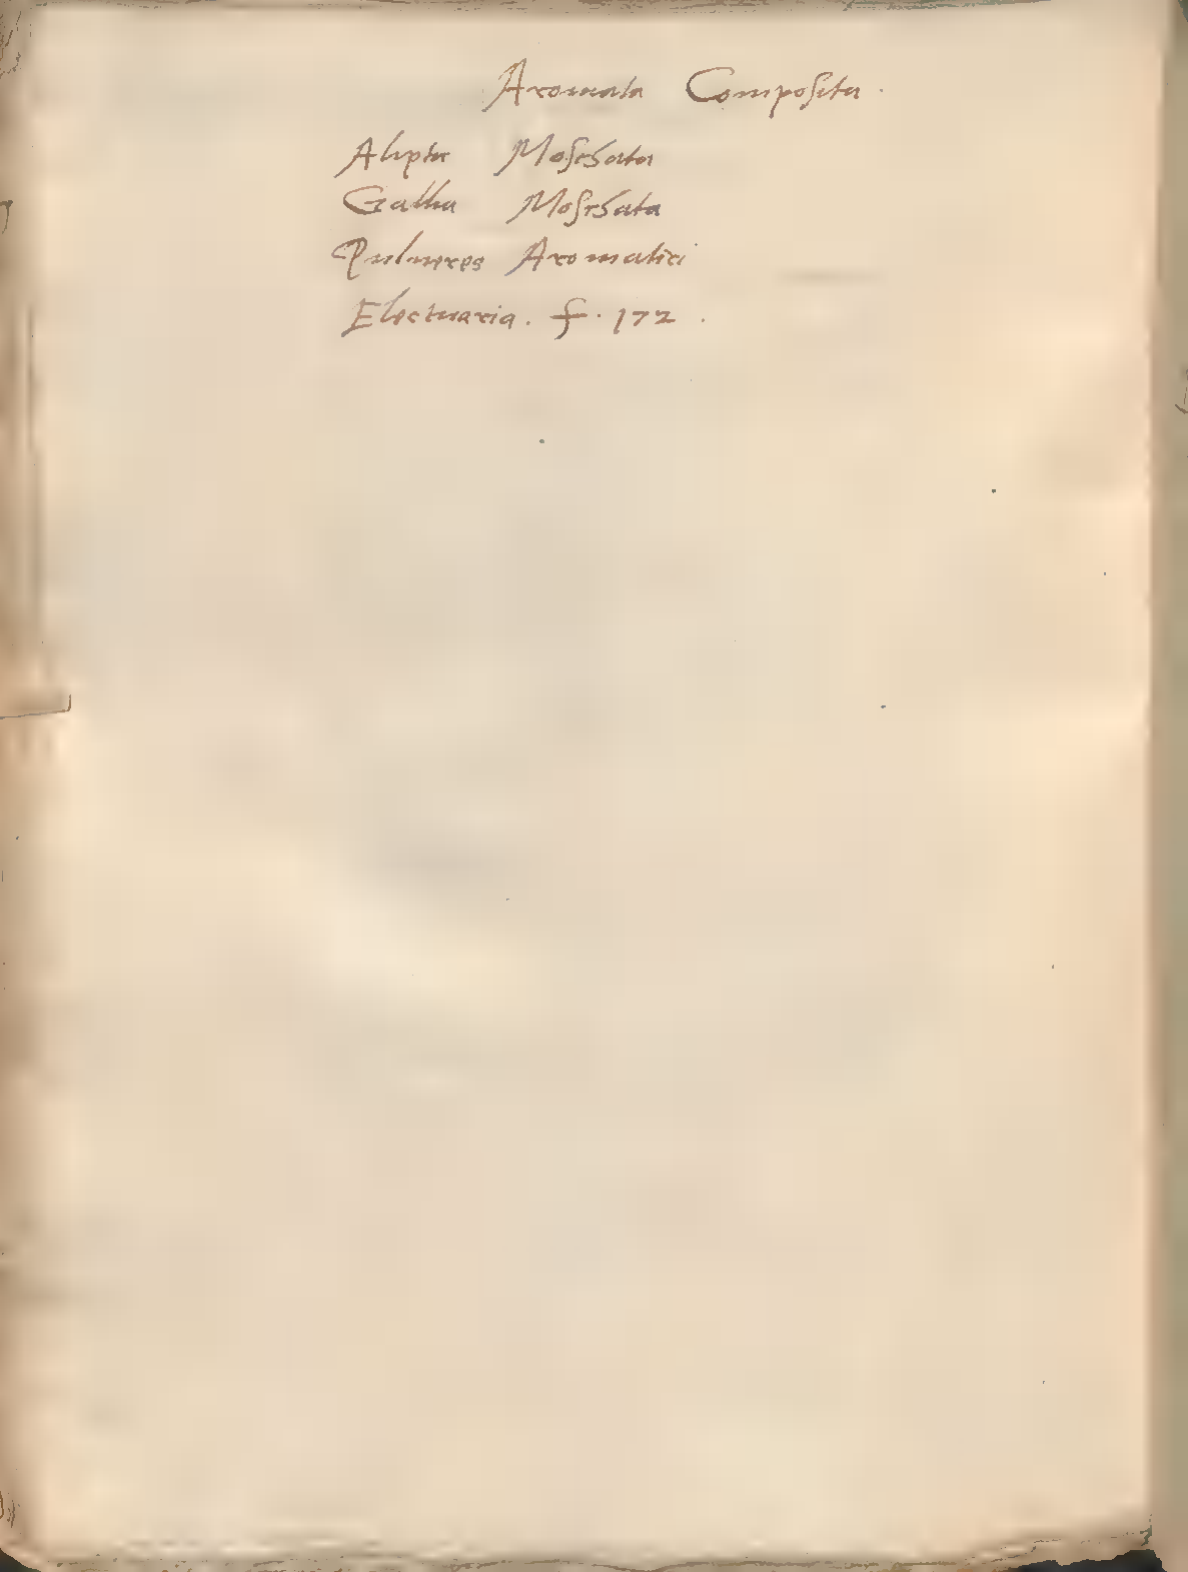 Aromata Composita.
Alipta Moschata
Gallia Moschata
Pulueres Aromatici
Electuaria. f. 172.